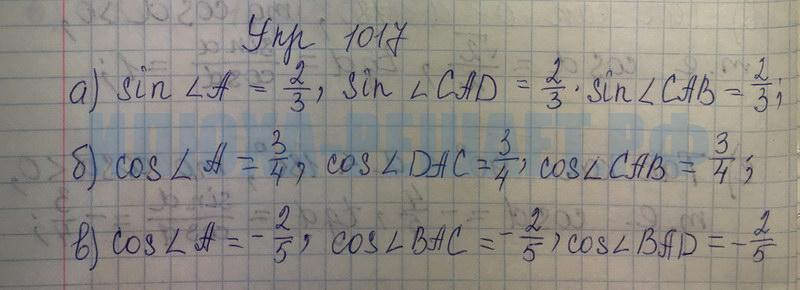 Упр 1017
а) sin ∠A = 2/3, sin ∠CAD = 2/3 · sin ∠CAB = 2/3;
ИЛЮХА-РЕШАЕТ.РФ
б) cos ∠A = 3/4, cos ∠DAC = 3/4, cos ∠CAB = 3/4;
в) cos ∠A = -2/5, cos ∠BAC = -2/5, cos ∠BAD = -2/5